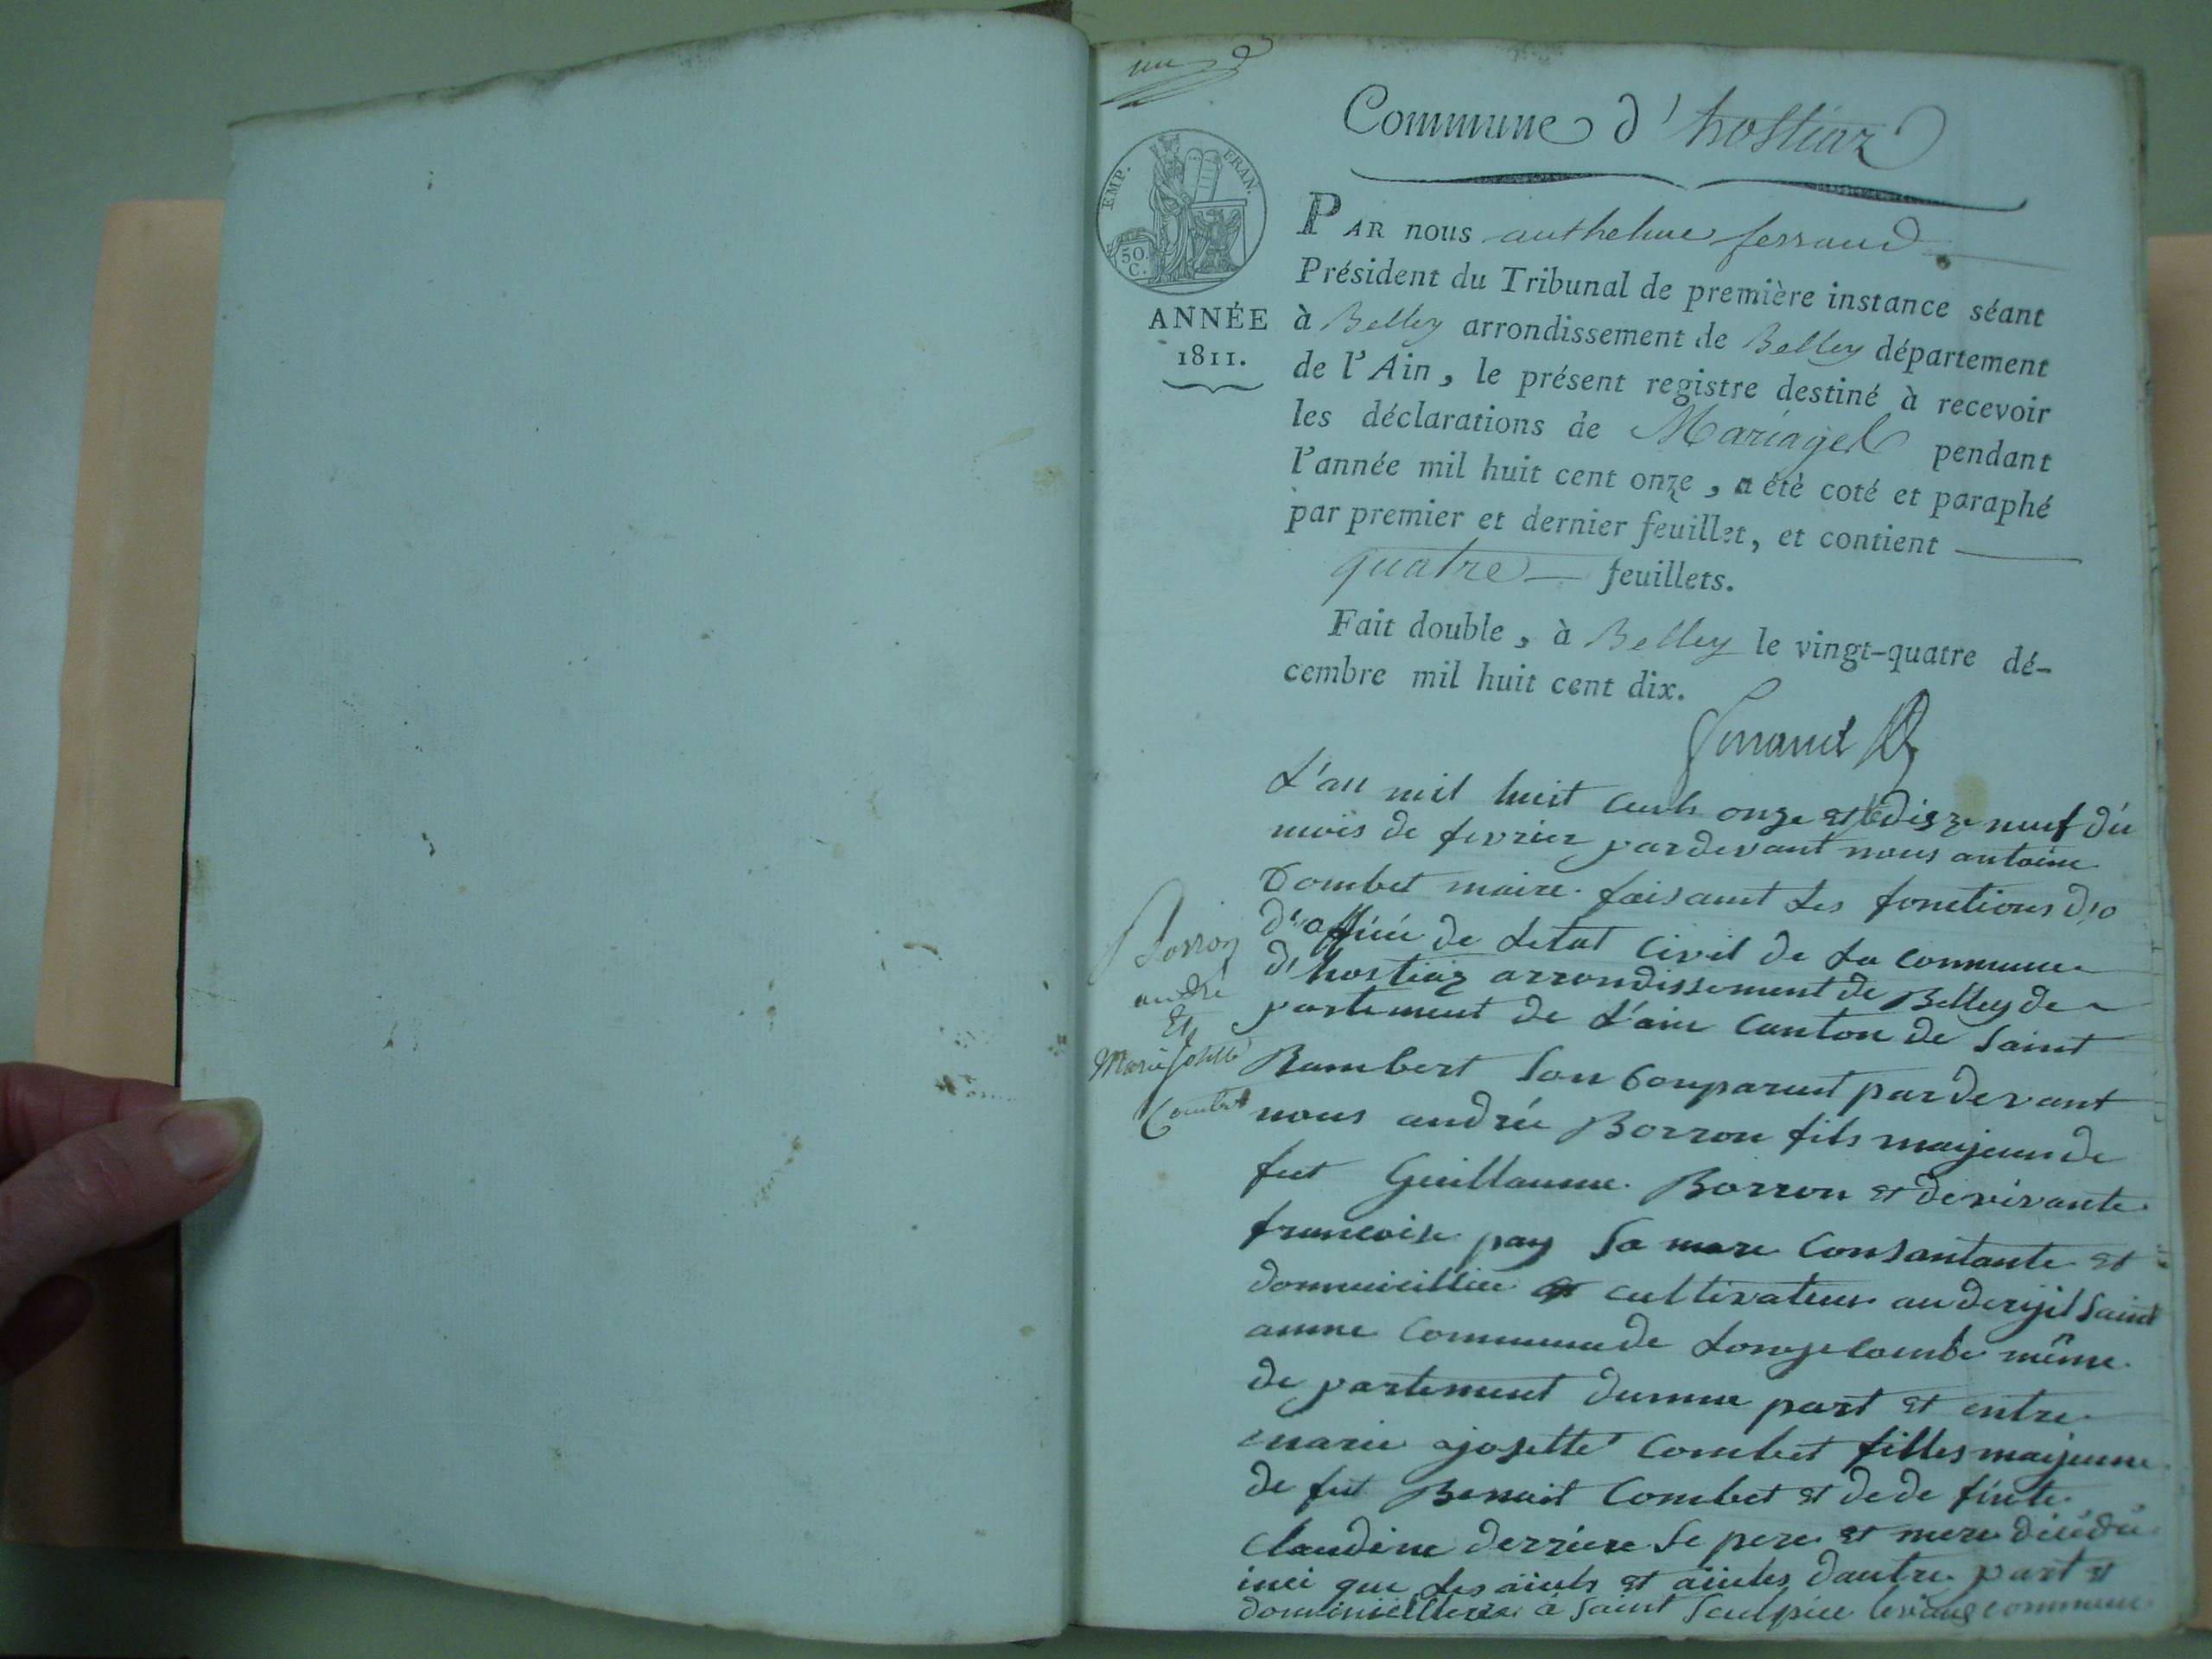 un
Commune d'hostiaz
EMP. FRAN.
50.
C.
ANNÉE
1811.
PAR nous anthelme ferrand
Président du Tribunal de première instance séant
à Belley arrondissement de Belley département
de l'Ain, le présent registre destiné à recevoir
les déclarations de Mariages pendant
l'année mil huit cent onze, a été coté et paraphé
par premier et dernier feuillet, et contient
quatre feuillets.
Fait double, à Belley le vingt-quatre dé-
cembre mil huit cent dix.
ferrand
Borron
andré
Et
Marie Josette
Combet
L'an mil huit cents onze et le dix neuf du
mois de fevrier pardevant nous antoine
Combet maire faisant les fonctions
d'officié de letat Civil de la commune
d'hostiaz arrondissement de Belley de
partement de L'ain Canton de Saint
Rambert son comparut pardevant
nous andrée Borron fils majeur de
fut Guillaume Borron et de vivante
francoise pay sa mere Consantante et
dommicilliee cultivateur au Saint
anne Commune de Longecombe même
de partement dunne part et entre
marie josette Combet filles majeure
de fut Benoit Combet et de de funte
Claudine derriere le pere et mere
que les aieuls et aieules dautre part et
à Saint Sulpice commune